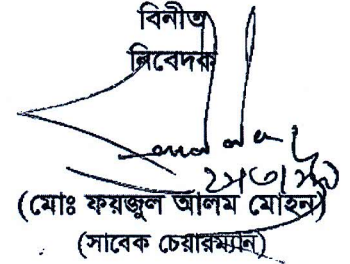 বিনীত
নিবেদক
(মোঃ ফয়জুল আলম মোহন)
(সাবেক চেয়ারম্যান)